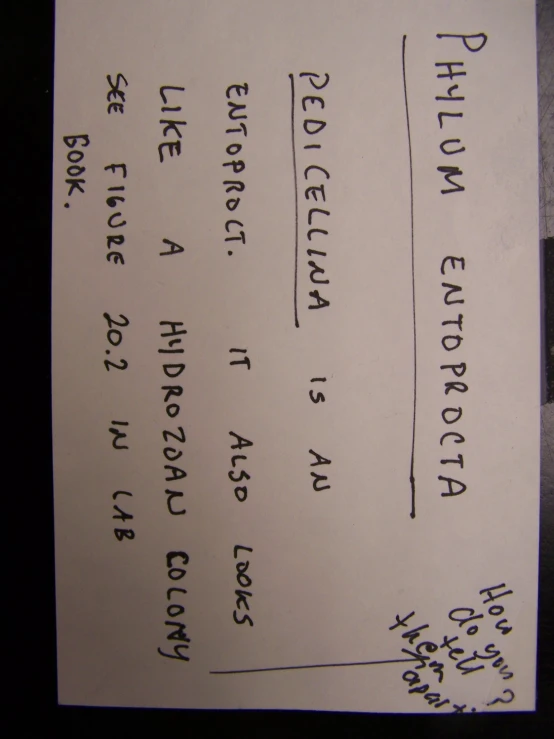 PHYLUM ENTOPROCTA
PEDICELLINA IS AN
ENTOPROCT. IT ALSO LOOKS
LIKE A HYDROZOAN COLONY
SEE FIGURE 20.2 IN LAB
BOOK.
How
do you ?
tell
them
apart.